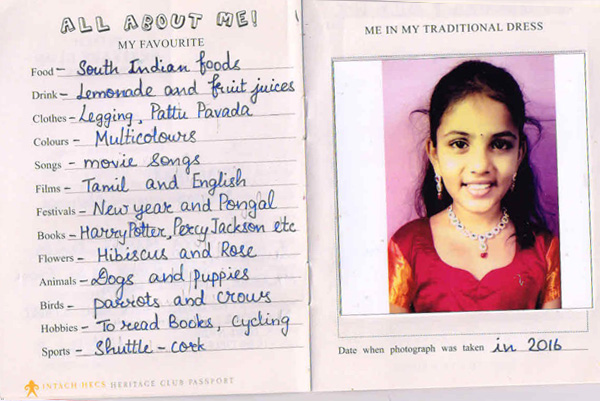 ALL ABOUT ME!
MY FAVOURITE
Food – South Indian foods
Drink – Lemonade and fruit juices
Clothes – Legging, Pattu Pavada
Colours – Multicolours
Songs – movie songs
Films – Tamil and English
Festivals – New year and Pongal
Books – Harry Potter, Percy Jackson etc
Flowers – Hibiscus and Rose
Animals – Dogs and puppies
Birds – parrots and crows
Hobbies – To read Books, cycling
Sports – Shuttle – cork
INTACH HECS HERITAGE CLUB PASSPORT
ME IN MY TRADITIONAL DRESS
Date when photograph was taken in 2016